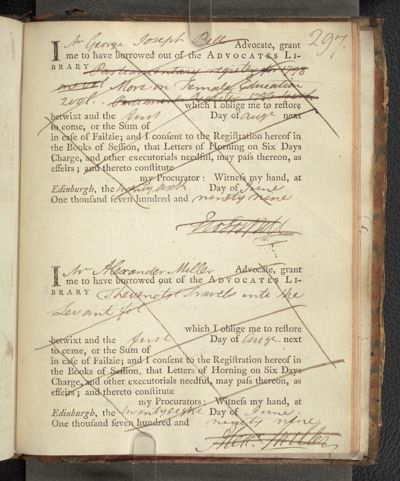 297.
I Mr George Joseph Bell Advocate, grant
me to have borrowed out of the ADVOCATES LI-
BRARY Parliamentary register for 1798
More on Female Education
2 vol. 
which I oblige me to restore
betwixt and the first Day of Augt next
to come, or the Sum of
in case of Failzie; and I consent to the Registration hereof in
the Books of Session, that Letters of Horning on Six Days
Charge, and other executorials needful, may pass thereon, as
effeirs; and thereto constitute
my Procurator: Witness my hand, at
Edinburgh, the Day of June
One thousand seven hundred and ninety nine
I Mr Alexander Miller Advocate, grant
me to have borrowed out of the ADVOCATES LI-
BRARY Thevenots Travels into the
Levant fol
which I oblige me to restore
betwixt and the first Day of Augt next
to come, or the Sum of
in case of Failzie; and I consent to the Registration hereof in
the Books of Session, that Letters of Horning on Six Days
Charge, and other executorials needful, may pass thereon, as
effeirs; and thereto constitute
my Procurators: Witness my hand, at
Edinburgh, the Day of June
One thousand seven hundred and ninety nine
Alexr. Miller